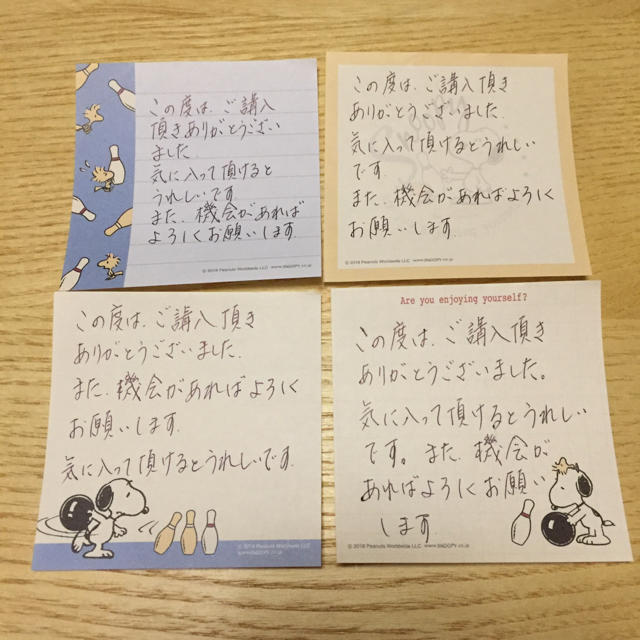 この度は、ご講入
頂きありがとうござい
ました。
気に入って頂けると
うれしいです。
また、機会があれば
よろしくお願いします。
© 2018 Peanuts Worldwide LLC www.SNOOPY.co.jp
この度は、ご講入頂き
ありがとうございました。
気に入って頂けるとうれしい
です。
また、機会があればよろしく
お願いします。
© 2018 Peanuts Worldwide LLC www.SNOOPY.co.jp
この度は、ご講入頂き
ありがとうございました。
また、機会があればよろしく
お願いします。
気に入って頂けるとうれしいです。
© 2018 Peanuts Worldwide LLC
www.SNOOPY.co.jp
Are you enjoying yourself?
この度は、ご講入頂き
ありがとうございました。
気に入って頂けるとうれしい
です。また、機会が
あればよろしくお願い
します。
© 2018 Peanuts Worldwide LLC www.SNOOPY.co.jp